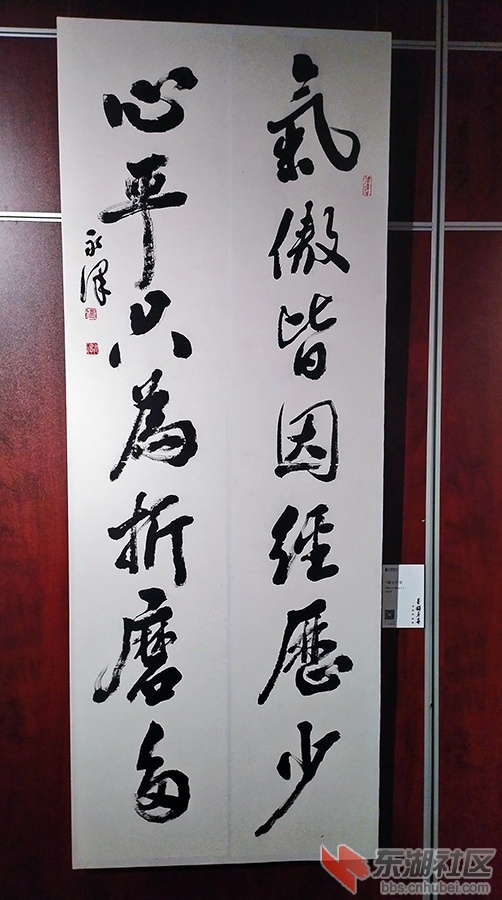 氣傲皆因經歷少
心平只為折磨多
永澤
东湖社区
bbs.cnhubei.com